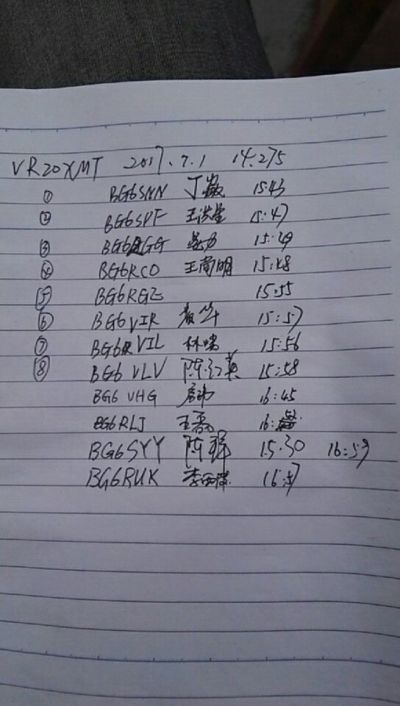 VR20XMT 2017.7.1 14.275
① BG6SNN 丁 15:43
② BG6SPF 王 15:47
③ BG6 GG 15:49
④ BG6RCO 王南明 15:48
⑤ BG6RGZ 15:55
⑥ BG6VIR 15:57
⑦ BG6 VIL 林 15:56
⑧ BG6 VLV 陈红英 15:58
BG6 VHG 16:45
BG6RLJ 王 16:
BG6SYY 陈辉 15:30 16:59
BG6RUK 李 16:57